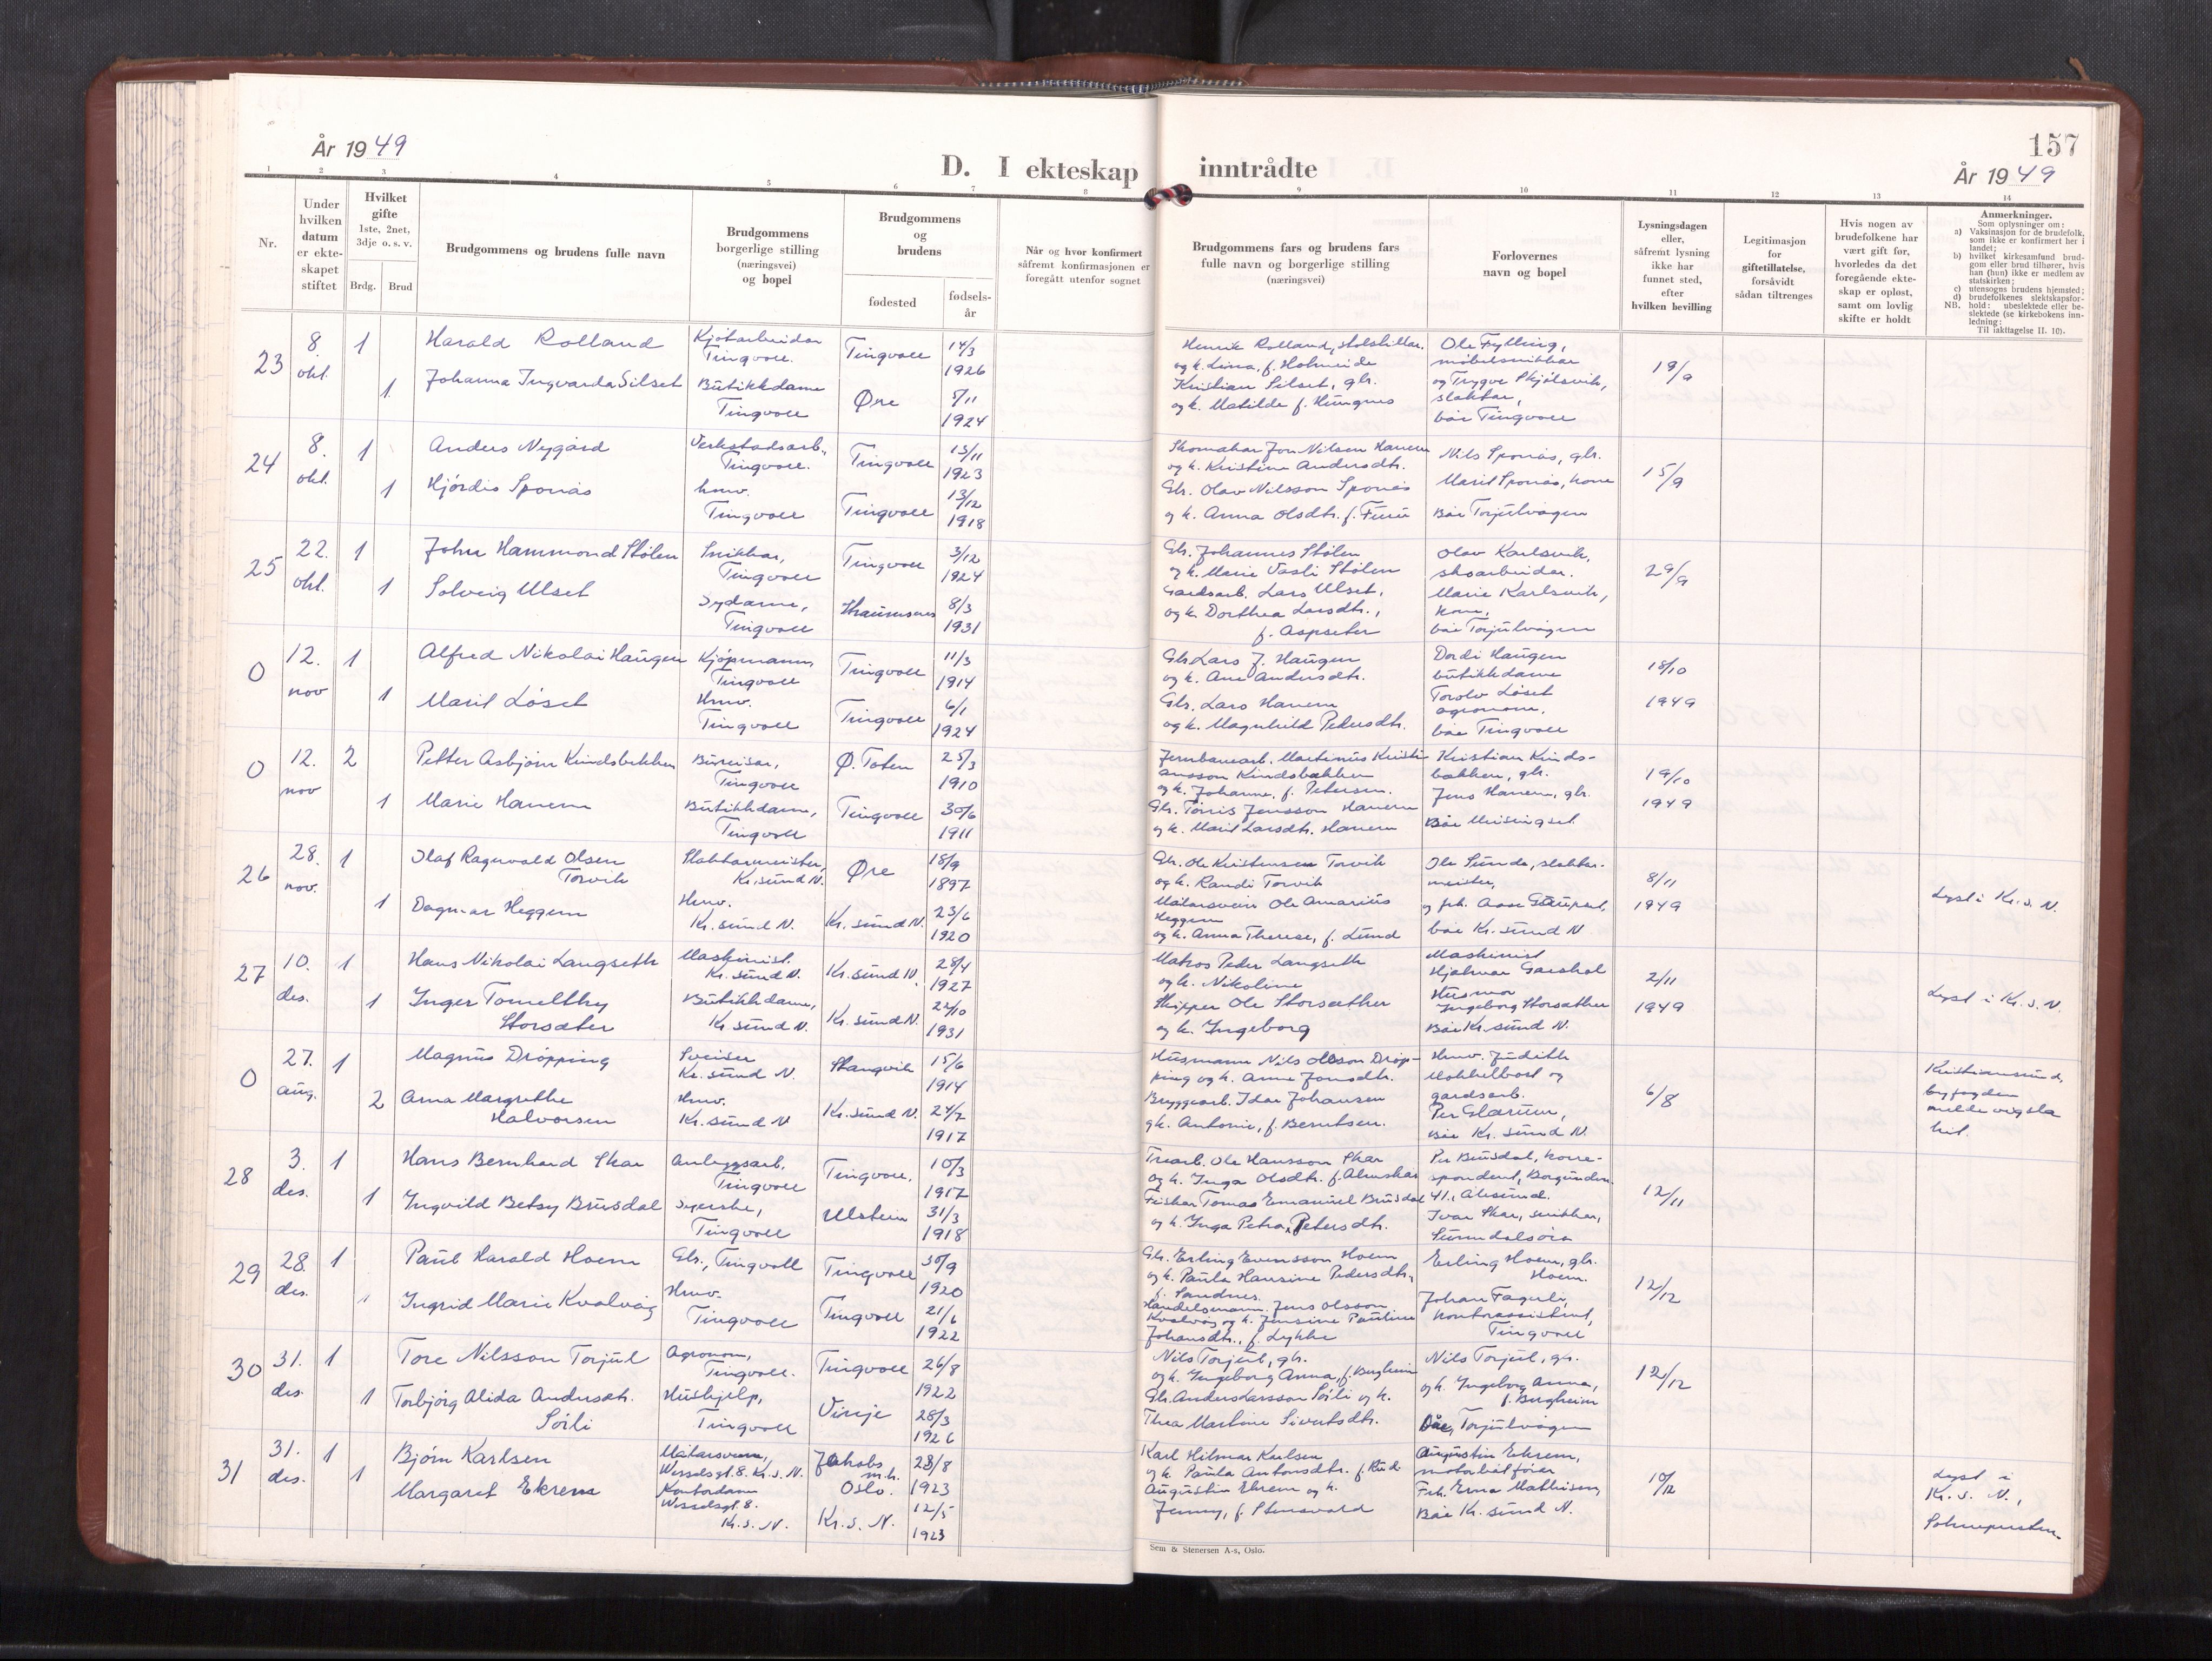 157
År 1949
D. I ekteskap inntrådte
År 1949
1 2 3 4 5 6 7 8 9 10 11 12 13 14
Nr.
Under
hvilken
datum
er ekte-
skapet
stiftet
Hvilket
gifte
1ste, 2net,
3dje o. s. v.
Brdg. Brud
Brudgommens og brudens fulle navn
Brudgommens
borgerlige stilling
(næringsvei)
og bopel
Brudgommens
og
brudens
fødested
fødsels-
år
Når og hvor konfirmert
såfremt konfirmasjonen er
foregått utenfor sognet
Brudgommens fars og brudens fars
fulle navn og borgerlige stilling
(næringsvei)
Forlovernes
navn og bopel
Lysningsdagen
eller,
såfremt lysning
ikke har
funnet sted,
efter
hvilken bevilling
Legitimasjon
for
giftetillatelse,
forsåvidt
sådan tiltrenges
Hvis nogen av
brudefolkene har
vært gift før,
hvorledes da det
foregående ekte-
skap er opløst,
samt om lovlig
skifte er holdt
Anmerkninger.
Som oplysninger om:
a) Vaksinasjon for de brudefolk,
som ikke er konfirmert her i
landet;
b) hvilket kirkesamfund brud-
gom eller brud tilhører, hvis
han (hun) ikke er medlem av
statskirken;
c) utensogns brudens hjemsted;
d) brudefolkenes slektskapsfor-
hold: ubeslektede eller be-
slektede (se kirkebokens inn-
ledning:
NB. Til iakttagelse II. 10).
23
8.
okt.
1
1
Harald Rolland
Johanna Ingvarda Silset
Kjøtarbeidar
Tingvoll.
Butikkdame
Tingvoll
Tingvoll
Øre
14/3
1926
5/11
1924
Henrik Rolland,
og k. Lina, f. Holmeide
Kristian Silset, gbr.
og k. Matilde f. Hungnes
Ole Fylling,
møbelsnikkar
og Trygve Skjølsvik,
slaktar,
båe Tingvoll
19/9
24
8.
okt.
1
1
Anders Nygård
Hjørdis Sponås
Verkstadsarb.,
Tingvoll.
hmv.
Tingvoll
Tingvoll
Tingvoll
13/11
1923
13/12
1918
Skomakar Jon Nilsen Hanem
og k. Kristine Andersdtr.
Gbr. Olav Nilsson Sponås
og k. Anna Olsdtr. f. Furu
Nils Sponås, gbr.
Marit Sponås, kone
Båe Torjulvågen
15/9
25
22.
okt.
1
1
John Hammond Stølen
Solveig Ulset
Snikkar,
Tingvoll
Sydame,
Tingvoll
Tingvoll
3/12
1924
8/3
1931
Gbr. Johannes Stølen
og k. Marie Vasli Stølen
Gardsarb. Lars Ulset,
og k. Dorthea Larsdtr.,
f. Aspseter
Olav Karlsvik,
skoarbeidar.
Marie Karlsvik,
kone,
båe Torjulvågen
29/9
0
12.
nov
1
1
Alfred Nikolai Haugen
Marit Løset
Kjøpmann,
Tingvoll
Hmv.
Tingvoll
Tingvoll
Tingvoll
11/3
1914
6/1
1924
Gbr. Lars J. Haugen
og k. Ane Andersdtr.
Gbr. Lars Hanem
og k. Magnhild Pedersdtr.
Dordi Haugen
butikkdame
Torolv Løset
agronom,
båe Tingvoll
18/10
1949
0
12.
nov
2
1
Petter Asbjørn Kindsbekken
Marie Hanem
Bureisar,
Tingvoll
Butikkdame,
Tingvoll
Ø. Toten
Tingvoll
25/3
1910
30/6
1911
Jernbanearb. Martinus Kristi-
ansson Kindsbakken
og k. Johanne, f. Petersen.
Gbr. Tørris Jensson Hanem
og k. Marit Larsdtr. Hanem
Kristian Kinds-
bakken, gbr.
Jens Hanem, gbr.
Båe Meisingset
19/10
1949
26
28.
nov.
1
1
Olaf Ragnvald Olsen
Torvik
Dagmar Heggem
Slaktarmeister,
Kr.sund N.
Hmv.
Kr. sund N.
Øre
Kr. sund N.
18/9
1897
23/6
1920
Gbr. Ole Kristensen Torvik
og k. Randi Torvik
Målarsvein Ole Amarius
Heggem
og k. Anna Therese, f. Lund
Ole Sunde, slaktar-
meister,
og frk. Aase
båe Kr. sund N
8/11
1949
Lyst i Kr. s. N.
27
10.
des.
1
1
Hans Nikolai Langseth
Inger Tomelthy
Storsæter
Maskinist.
Kr. sund N.
Butikkdame,
Kr. sund N.
Kr. sund N.
Kr. sund N.
28/4
1927
22/10
1931
Matros Peder Langseth
og k. Nikoline
Skipper Ole Storsæther
og k. Ingeborg
Maskinist
Hjalmar Garshol
Husmor
Ingeborg Storsæther
Båe Kr. sund N.
2/11
1949
Lyst i Kr. s. N.
0
27.
aug.
1
2
Magnus Drøpping
Arna Margrethe
Halvorsen
Sveiser
Kr. sund N.
Hmv.
Kr. sund N
Stangvik
Kr. sund N.
15/6
1914
24/7
1917
Husmann Nils Olsson Drøp-
ping og k. Anne Jonsdtr.
Bryggearb. Idar Johansen
og k. Antonie, f. Berntsen.
Hmv. Judith
Mokkelbost og
gardsarb.
Per Glærum,
båe Kr. sund N.
6/8
Kristiansund,
byfogden
melde vigsla
hit.
28
3.
des.
1
1
Hans Bernhard Skar
Ingvild Betsy Brusdal
Anleggsarb.
Tingvoll
Syerske,
Tingvoll
Tingvoll,
Ulstein
10/3
1917
31/3
1918
Trearb. Ole Hansson Skar
og k. Inga Olsdtr. f. Almskar
Fiskar Tomas Emanuel Brusdal
og k. Inga Petra, Petersdtr.
Per Brusdal, korre-
spondent, Borgundv.
41., Ålesund.
Ivar Skar, snikkar,
Sunndalsøra
12/11
29
28.
des.
1
1
Paul Harald Hoem
Ingrid Marie Kvalvåg
Gbr., Tingvoll
Hmv.
Tingvoll
Tingvoll
Tingvoll
30/9
1920
21/6
1922
Gbr. Erling Evensson Hoem
og k. Paula Hansine Pedersdtr.,
f. Sandnes.
Handelsmann. Jens Olsson
Kvalvåg og k. Jensine Pauline
Johansdtr., f. Lykke
Erling Hoem, gbr.
Hoem.
Johan Fagerli,
kontorassistent,
Tingvoll
12/12
30
31.
des.
1
1
Tore Nilsson Torjul
Torbjørg Alida Andersdtr.
Sørli
Agronom,
Tingvoll.
Hushjelp,
Tingvoll
Tingvoll
Vinje
26/8
1922
28/3
1926
Nils Torjul, gbr.
og k. Ingeborg Anna, f. Bergheim
Gbr. Anders Larsson Sørli og k.
Thea Martine Sivertsdtr.
Nils Torjul, gbr.
og k. Ingeborg Anna,
f. Bergheim
Båe, Torjulvågen
12/12
31
31.
des.
1
1
Bjørn Karlsen
Margaret Ekrem
Målarsvenn,
Wesselsgt. 8. Kr. s. N.
Kontordame
Wesselsgt. 8.
Kr. s. N.
Jakobs
m.h.
Oslo.
Kr. s. N.
28/8
1923
12/5
1923
Karl Hilmar Karlsen
og k. Paula Antonsdtr. f. Rud
Augustin Ekrem og k.
Jenny, f. Stensvold
Augustin Ekrem,
motorbåtfører
Frk. Erna Mathisen,
Båe Kr. sund N.
10/12
Lyst i
Kr. s. N.,
Sem & Stenersen A-s, Oslo.